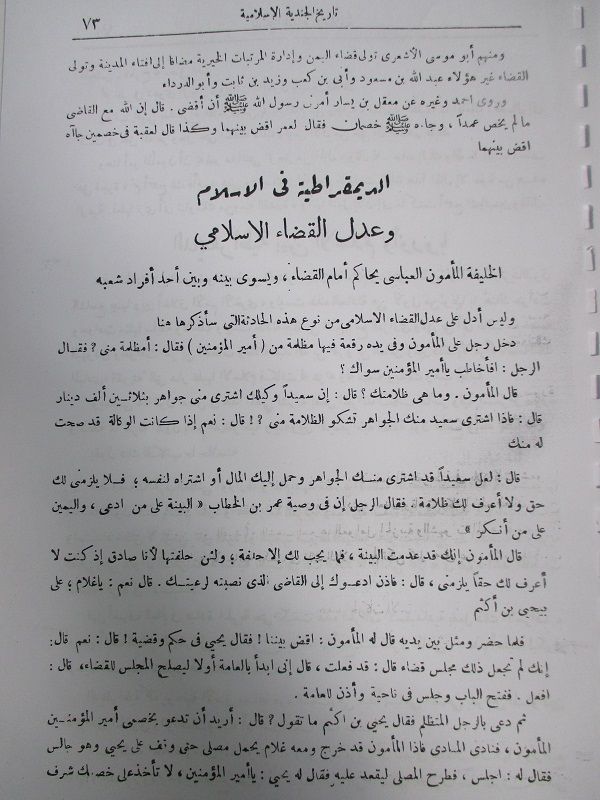 تاريخ الجندية الإسلامية
٧٣
ومنهم أبو موسى الأشعرى تولى قضاء اليمن وإدارة المرتبات الخيرية مضافا إلى إفتاء المدينة وتولى
القضاء غير هؤلاء عبد الله بن مسعود وأبى بن كعب وزيد بن ثابت وأبو الدرداء
وروى احمد وغيره عن معقل بن يسار أمرنى رسول الله ﷺ أن أقضى . قال إن الله مع القاضى
ما لم يخص عمداً ، وجاءه ﷺ خصمان فقال لعمر اقض بينهما وكذا قال لعقبة فى خصمين جاآه
اقض بينهما
الديمقراطية فى الاسلام
وعدل القضاء الاسلامي
الخليفة المأمون العباسى يحاكم أمام القضاء ، ويسوى بينه وبين أحد أفراد شعبه
وليس أدل على عدل القضاء الاسلامى من نوع هذه الحادثة التى سأذكرها هنا
دخل رجل على المأمون وفى يده رقعة فيها مظلمة من ( أمير المؤمنين ) فقال : أمظلمة منى ? فقال
الرجل : افأخاطب ياأمير المؤمنين سواك ؟
قال المأمون . وما هى ظلامتك ؟ قال : إن سعيداً وكيلك اشترى منى جواهر بثلاثين ألف دينار
قال : فاذا اشترى سعيد منك الجواهر تشكو الظلامة منى ?! قال : نعم إذا كانت الوكالة قد صحت
له منك
قال : لعل سعيداً قد اشترى منك الجواهر وحمل إليك المال أو اشتراه لنفسه ؛ فلا يلزمنى لك
حق ولا أعرف لك ظلامة . فقال الرجل إن فى وصية عمر بن الخطاب « البينة على من ادعى ، واليمين
على من أنكر »
قال المأمون إنك قد عدمت البينة ، فما يجب لك إلا حلفة ؛ ولئن حلفتها لأنا صادق إذ كنت لا
أعرف لك حقاً يلزمنى ، قال : فاذن ادعوك إلى القاضى الذى نصبته لرعيتك . قال نعم : ياغلام ؛ على
بيحيى بن أكثم
فلما حضر ومثل بين يديه قال له المأمون : اقض بيننا ! فقال يحيى فى حكم وقضية ! قال : نعم قال:
إنك لم تجعل ذلك مجلس قضاء قال : قد فعلت ، قال إنى ابدأ بالعامة أولا ليصلح المجلس للقضاء، قال :
افعل . ففتح الباب وجلس فى ناحية وأذن للعامة .
ثم دعى بالرجل المتظلم فقال يحيى بن اكثم ما تقول ? قال : أريد أن تدعو بخصمى أمير المؤمنين
المأمون ، فنادى المنادى فاذا المأمون قد خرج ومعه غلام يحمل مصلى حتى وقف على يحيى وهو جالس
فقال له : اجلس ، فطرح المصلى ليقعد عليه فقال له يحيى : ياأمير المؤمنين ، لا تأخذ على خصمك شرف